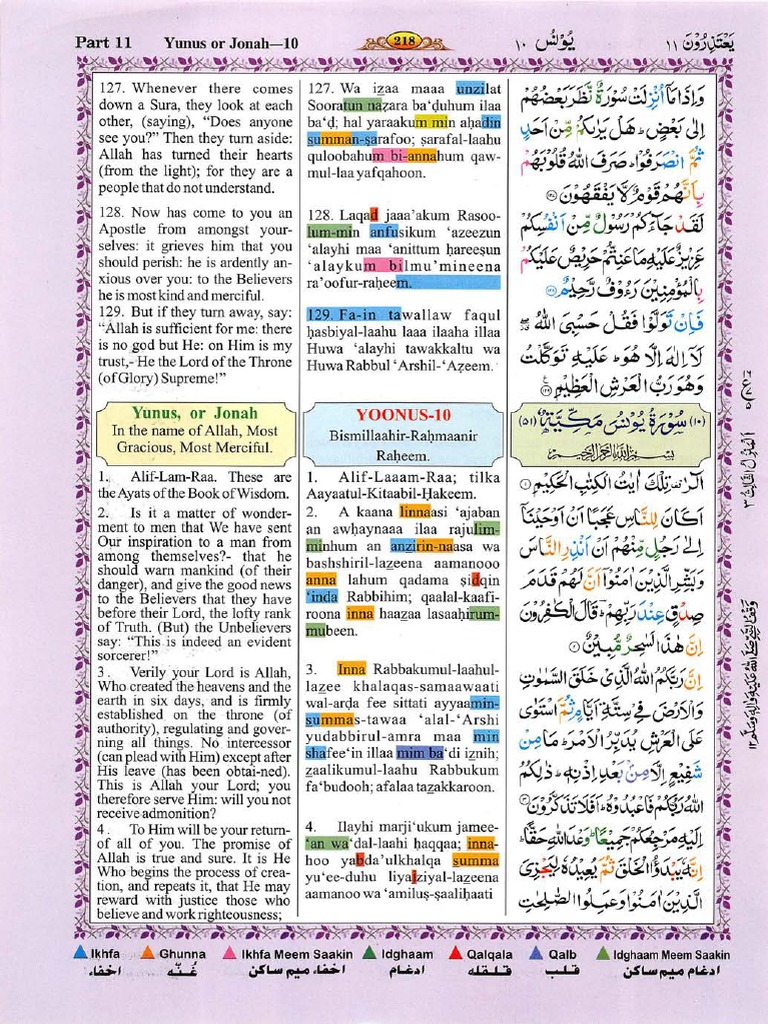 Part 11
Yunus or Jonah—10
218
يُوْنُسُ ١٠
يَعْتَذِرُوْنَ ١١
127. Whenever there comes
down a Sura, they look at each
other, (saying), “Does anyone
see you?” Then they turn aside:
Allah has turned their hearts
(from the light); for they are a
people that do not understand.
128. Now has come to you an
Apostle from amongst your-
selves: it grieves him that you
should perish: he is ardently an-
xious over you: to the Believers
he is most kind and merciful.
129. But if they turn away, say:
“Allah is sufficient for me: there
is no god but He: on Him is my
trust,- He the Lord of the Throne
(of Glory) Supreme!”
Yunus, or Jonah
In the name of Allah, Most
Gracious, Most Merciful.
1. Alif-Lam-Raa. These are
the Ayats of the Book of Wisdom.
2. Is it a matter of wonder-
ment to men that We have sent
Our inspiration to a man from
among themselves?- that he
should warn mankind (of their
danger), and give the good news
to the Believers that they have
before their Lord, the lofty rank
of Truth. (But) the Unbelievers
say: “This is indeed an evident
sorcerer!”
3. Verily your Lord is Allah,
Who created the heavens and the
earth in six days, and is firmly
established on the throne (of
authority), regulating and gover-
ning all things. No intercessor
(can plead with Him) except after
His leave (has been obtai-ned).
This is Allah your Lord; you
therefore serve Him: will you not
receive admonition?
4. To Him will be your return-
of all of you. The promise of
Allah is true and sure. It is He
Who begins the process of crea-
tion, and repeats it, that He may
reward with justice those who
believe and work righteousness;
127. Wa izaa maaa unzilat
Sooratun nazara ba‘duhum ilaa
ba‘ḍ; hal yaraakum min aḥadin
summan-ṣarafoo; ṣarafal-laahu
quloobahum bi-annahum qaw-
mul-laa yafqahoon.
128. Laqad jaaa’akum Rasoo-
lum-min anfusikum ‘azeezun
‘alayhi maa ‘anittum ḥareeṣun
‘alaykum bilmu’mineena
ra’oofur-raḥeem.
129. Fa-in tawallaw faqul
ḥasbiyal-laahu laaa ilaaha illaa
Huwa ‘alayhi tawakkaltu wa
Huwa Rabbul ‘Arshil-‘Aẓeem.
YOONUS-10
Bismillaahir-Raḥmaanir
Raḥeem.
1. Alif-Laaam-Raa; tilka
Aayaatul-Kitaabil-Ḥakeem.
2. A kaana linnaasi ‘ajaban
an awḥaynaaa ilaa rajulim-
minhum an anzirin-naasa wa
bashshiril-lazeena aamanooo
anna lahum qadama ṣidqin
‘inda Rabbihim; qaalal-kaafi-
roona inna haazaa lasaaḥirum-
mubeen.
3. Inna Rabbakumul-laahul-
lazee khalaqas-samaawaati
wal-arḍa fee sittati ayyaamin-
summas-tawaa ‘alal-‘Arshi
yudabbirul-amra maa min
shafee‘in illaa mim ba‘di iznih;
zaalikumul-laahu Rabbukum
fa‘budooh; afalaa tazakkaroon.
4. Ilayhi marji‘ukum jamee-
‘an wa‘dal-laahi ḥaqqaa; inna-
hoo yabda’ulkhalqa summa
yu‘ee-duhu liyajziyal-lazeena
aamanoo wa ‘amiluṣ-ṣaaliḥaati
وَاِذَا مَاۤ اُنْزِلَتْ سُوْرَةٌ نَّظَرَ بَعْضُهُمْ
اِلٰى بَعْضٍؕ هَلْ يَرٰىكُمْ مِّنْ اَحَدٍ
ثُمَّ انْصَرَفُوْاؕ صَرَفَ اللّٰهُ قُلُوْبَهُمْ
بِاَنَّهُمْ قَوْمٌ لَّا يَفْقَهُوْنَ
لَقَدْ جَآءَكُمْ رَسُوْلٌ مِّنْ اَنْفُسِكُمْ
عَزِيْزٌ عَلَيْهِ مَا عَنِتُّمْ حَرِيْصٌ عَلَيْكُمْ
بِالْمُؤْمِنِيْنَ رَءُوْفٌ رَّحِيْمٌ
فَاِنْ تَوَلَّوْا فَقُلْ حَسْبِيَ اللّٰهُ
لَاۤ اِلٰهَ اِلَّا هُوَؕ عَلَيْهِ تَوَكَّلْتُ
وَهُوَ رَبُّ الْعَرْشِ الْعَظِيْمِ
(١٠) سُوْرَةُ يُوْنُسَ مَكِّيَّةٌ (٥١)
بِسْمِ اللّٰهِ الرَّحْمٰنِ الرَّحِيْمِ
الٓرٰ تِلْكَ اٰيٰتُ الْكِتٰبِ الْحَكِيْمِ
اَكَانَ لِلنَّاسِ عَجَبًا اَنْ اَوْحَيْنَاۤ
اِلٰى رَجُلٍ مِّنْهُمْ اَنْ اَنْذِرِ النَّاسَ
وَبَشِّرِ الَّذِيْنَ اٰمَنُوْۤا اَنَّ لَهُمْ قَدَمَ
صِدْقٍ عِنْدَ رَبِّهِمْؕ قَالَ الْكٰفِرُوْنَ
اِنَّ هٰذَا لَسٰحِرٌ مُّبِيْنٌ
اِنَّ رَبَّكُمُ اللّٰهُ الَّذِيْ خَلَقَ السَّمٰوٰتِ
وَالْاَرْضَ فِيْ سِتَّةِ اَيَّامٍ ثُمَّ اسْتَوٰى
عَلَى الْعَرْشِ يُدَبِّرُ الْاَمْرَؕ مَا مِنْ
شَفِيْعٍ اِلَّا مِنْۢ بَعْدِ اِذْنِهٖؕ ذٰلِكُمُ
اللّٰهُ رَبُّكُمْ فَاعْبُدُوْهُؕ اَفَلَا تَذَكَّرُوْنَ
اِلَيْهِ مَرْجِعُكُمْ جَمِيْعًاؕ وَعْدَ اللّٰهِ حَقًّاؕ
اِنَّهٗ يَبْدَؤُا الْخَلْقَ ثُمَّ يُعِيْدُهٗ لِيَجْزِيَ
الَّذِيْنَ اٰمَنُوْا وَعَمِلُوا الصّٰلِحٰتِ
المنزل الثالث ٣
Ikhfa
Ghunna
Ikhfa Meem Saakin
Idghaam
Qalqala
Qalb
Idghaam Meem Saakin
اخفاء
غُنّه
اخفاء میم ساکن
ادغام
قلقله
قلب
ادغام میم ساکن